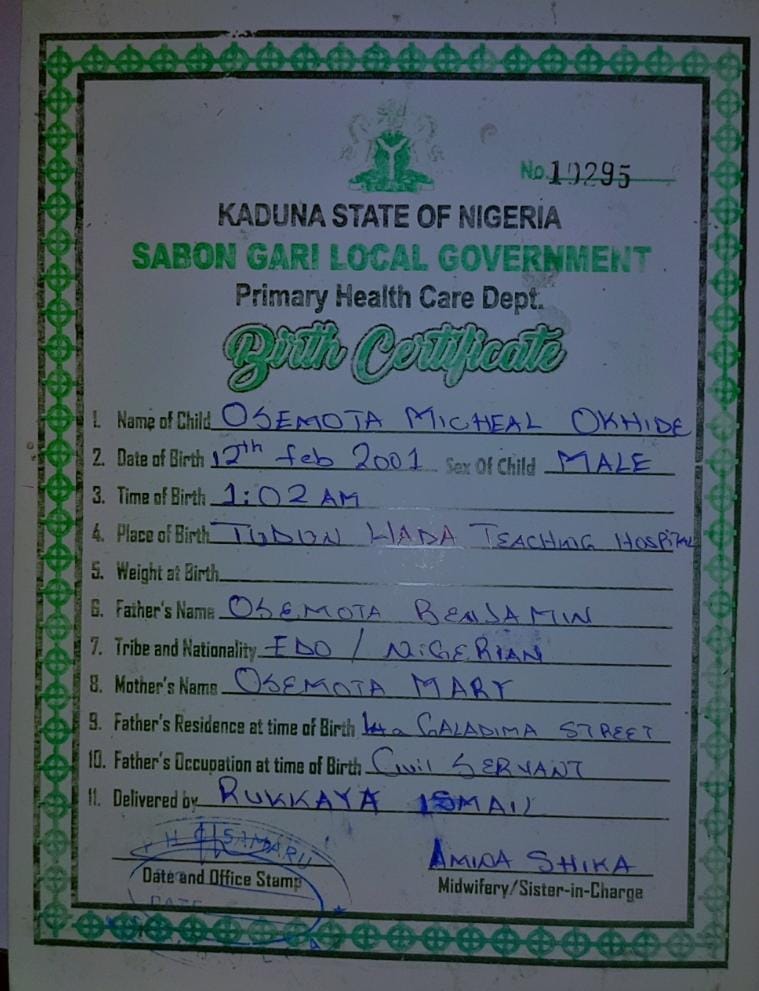 No. 10295
KADUNA STATE OF NIGERIA
SABON GARI LOCAL GOVERNMENT
Primary Health Care Dept.
Birth Certificate
1. Name of Child OSEMOTA MICHEAL OKHIDE
2. Date of Birth 12th feb 2001 Sex Of Child MALE
3. Time of Birth 1:02 AM
4. Place of Birth TUDUN WADA TEACHING HOSPITAL
5. Weight at Birth
6. Father's Name OSEMOTA BENJAMIN
7. Tribe and Nationality EDO / NIGERIAN
8. Mother's Name OSEMOTA MARY
9. Father's Residence at time of Birth GALADIMA STREET
10. Father's Occupation at time of Birth Civil SERVANT
11. Delivered by RUKKAYA ISMAIL
SAMARU
AMINA SHIKA
Date and Office Stamp
Midwifery/Sister-in-Charge
DATE